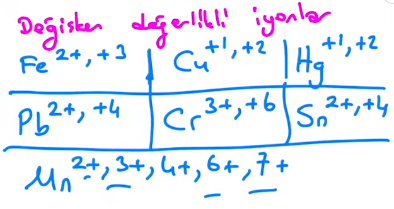 Değişken değerlikli iyonlar
Fe 2+, +3 Cu +1, +2 Hg +1, +2
Pb 2+, +4 Cr 3+, +6 Sn 2+, +4
Mn 2+, 3+, 4+, 6+, 7+